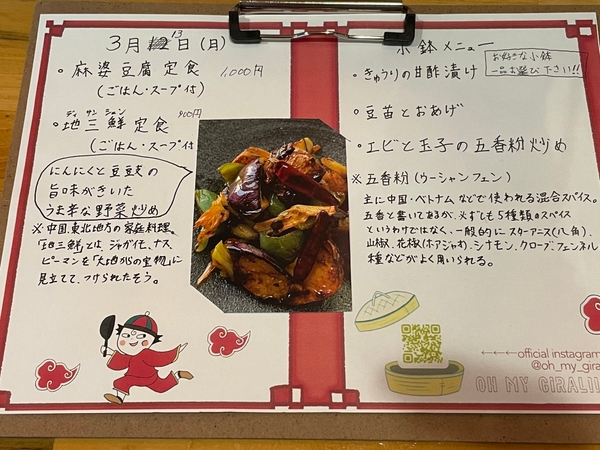 3月13日(月)
・麻婆豆腐定食 1,000円
(ごはん・スープ付)
ディ サン シェン
・地三鮮定食 900円
(ごはん・スープ付
にんにくと豆豉の
旨味がきいた
うま辛な野菜炒め
※中国、東北地方の家庭料理。
「地三鮮」とは、ジャガイモ、ナス、
ピーマンを「大地からの宝物」に
見立てて、つけられたそう。
小鉢メニュー
お好きな小鉢
一品お選び下さい!!
・きゅうりの甘酢漬け
・豆苗とおあげ
・エビと玉子の五香粉炒め
※五香粉(ウーシャンフェン)
主に中国・ベトナムなどで使われる混合スパイス。
五香と書いてあるが、必ずしも5種類のスパイス
というわけではなく、一般的にスターアニス(八角)、
山椒、花椒(ホアジャオ)、シナモン、クローブ、フェンネル
種などがよく用いられる。
←←←official instagram
@oh_my_gira
OH MY GIRA